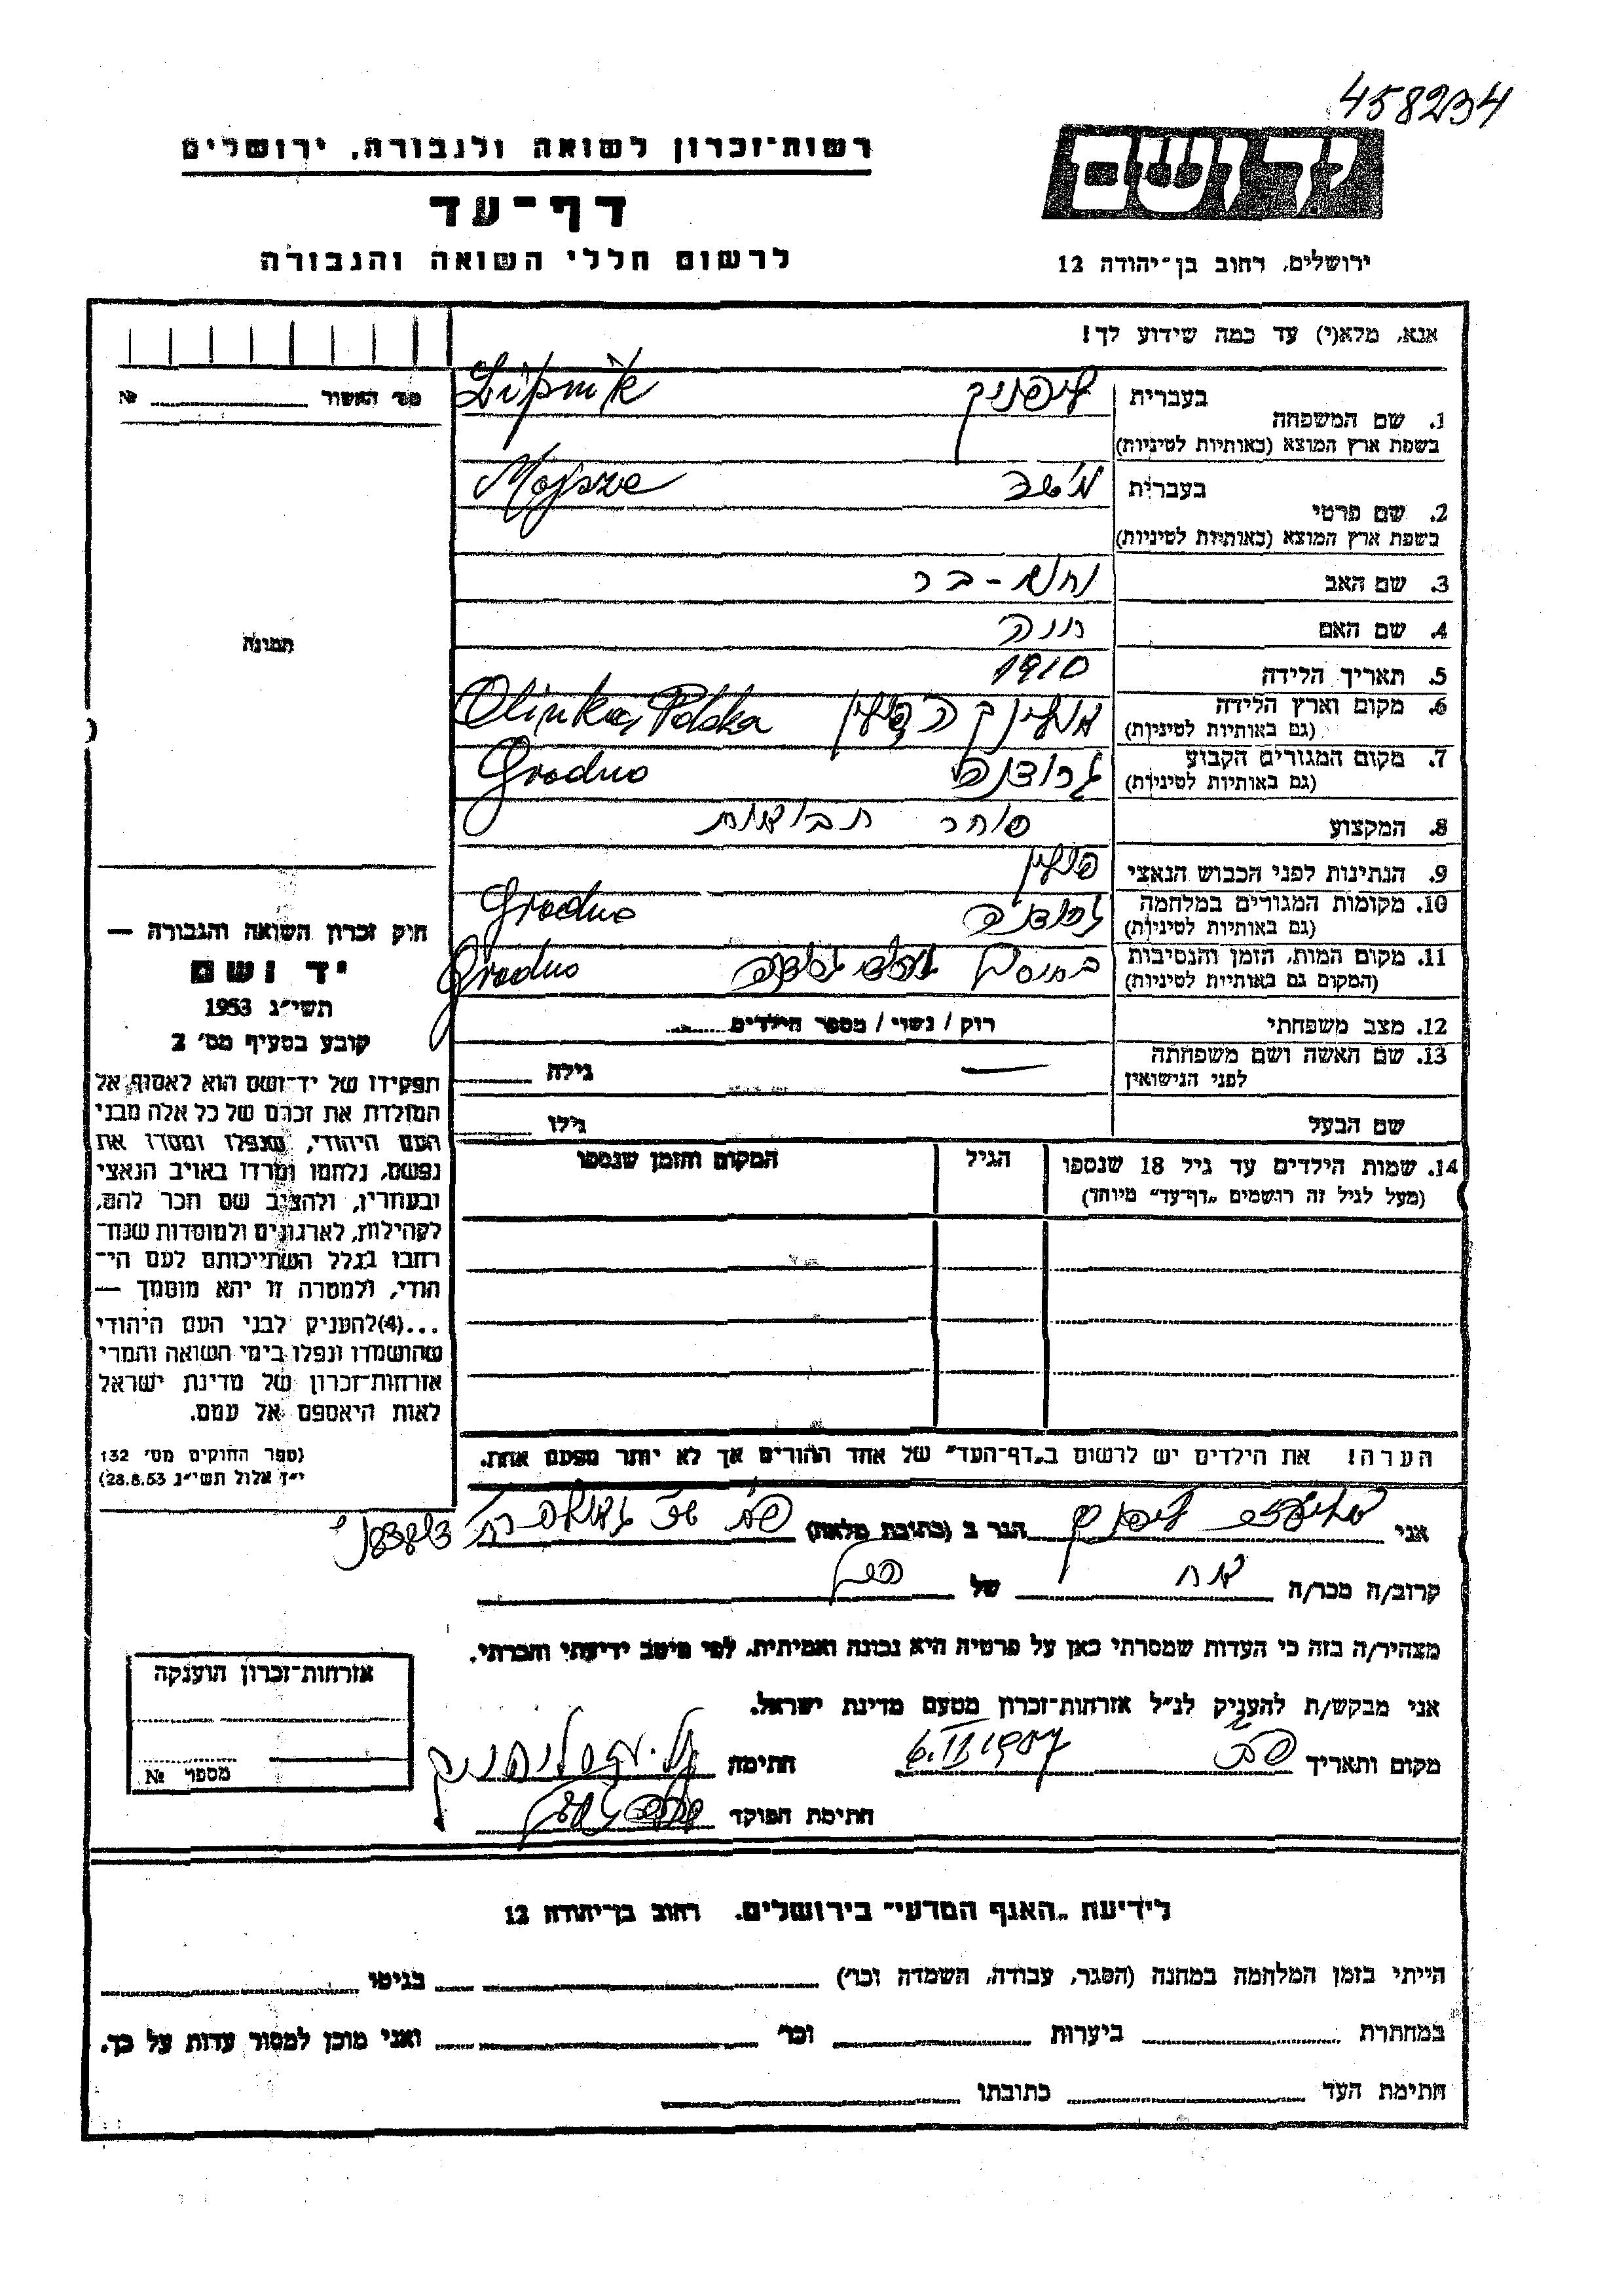 458234
רשות־זכרון לשואה ולגבורה, ירושלים
יד ושם
דף־עד
לרשום חללי השואה והגבורה
ירושלים, רחוב בן־יהודה 12
אנא, מלא(י) עד כמה שידוע לך!
מס׳ האשור № 
1. שם המשפחה בעברית ליפניק Lipnik
בשפת ארץ המוצא (באותיות לטיניות)
2. שם פרטי בעברית מ׳שה Mojsze
בשפת ארץ המוצא (באותיות לטיניות)
3. שם האב
4. שם האם
5. תאריך הלידה 1910
6. מקום וארץ הלידה (גם באותיות לטיניות) פולין Olinka, Polska
7. מקום המגורים הקבוע (גם באותיות לטיניות) גרודנה Grodno
8. המקצוע סוחר תבואות
9. הנתינות לפני הכבוש הנאצי פולין
10. מקומות המגורים במלחמה (גם באותיות לטיניות) גרודנה Grodno
11. מקום המות, הזמן והנסיבות (המקום גם באותיות לטיניות) Grodno
12. מצב משפחתי רוק / נשוי / מספר הילדים
13. שם האשה ושם משפחתה לפני הנישואין — גילה
שם הבעל גילו
14. שמות הילדים עד גיל 18 שנספו (מעל לגיל זה רושמים „דף־עד״ מיוחד)
הגיל
המקום והזמן שנספו
הערה! את הילדים יש לרשום ב„דף־העד״ של אחד ההורים אך לא יותר מפעם אחת.
תמונה
חוק זכרון השואה והגבורה —
יד ושם
תשי״ג 1953
קובע בסעיף מס׳ 2
תפקידו של יד־ושם הוא לאסוף אל
המולדת את זכרם של כל אלה מבני
העם היהודי, שנפלו ומסרו את
נפשם, נלחמו ומרדו באויב הנאצי
ובעוזריו, ולהציב שם וזכר להם,
לקהילות, לארגונים ולמוסדות שנח־
רבו בגלל השתייכותם לעם הי־
הודי, ולמטרה זו יהא מוסמך —
...(4) להעניק לבני העם היהודי
שהושמדו ונפלו בימי השואה והמרי
אזרחות־זכרון של מדינת ישראל
לאות היאספם אל עמם.
(ספר החוקים מס׳ 132
י״ז אלול תשי״ג 28.8.53)
אני ליפניק הגר ב (כתובת מלאה)
קרוב/ה מכר/ה אח של
מצהיר/ה בזה כי העדות שמסרתי כאן על פרטיה היא נכונה ואמיתית, לפי מיטב ידיעתי והכרתי.
אני מבקש/ת להעניק לנ״ל אזרחות־זכרון מטעם מדינת ישראל.
מקום ותאריך 6.II 1957 חתימה ליפניק
חתימת הפוקד
אזרחות־זכרון הוענקה
מספר №
לידיעת „האגף המדעי״ בירושלים, רחוב בן־יהודה 12
הייתי בזמן המלחמה במחנה (הסגר, עבודה, השמדה וכו׳) בגיטו
במחתרת ביערות וכו׳ ואני מוכן למסור עדות על כך.
חתימת העד כתובתו